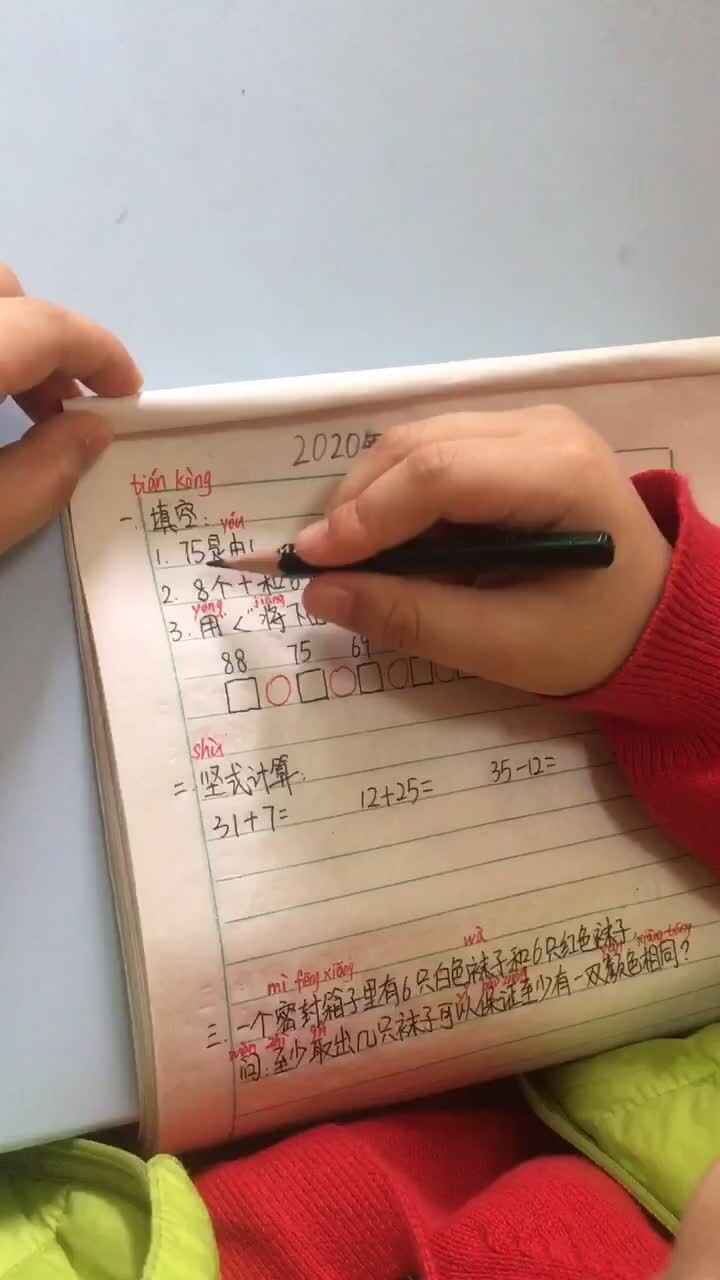 2020年
tián kòng
一、填空:
yóu
1. 75是由(
2. 8个十和8
yòng jiāng
3. 用"<"将下
88 75 69
shù
二、竖式计算:
31+7= 12+25= 35-12=
mì fēng xiāng wà
三、一个密封箱子里有6只白色袜子和6只红色袜子,
xiāng tóng
wèn zhì qǔ
问:至少取出几只袜子可以保证至少有一双颜色相同?